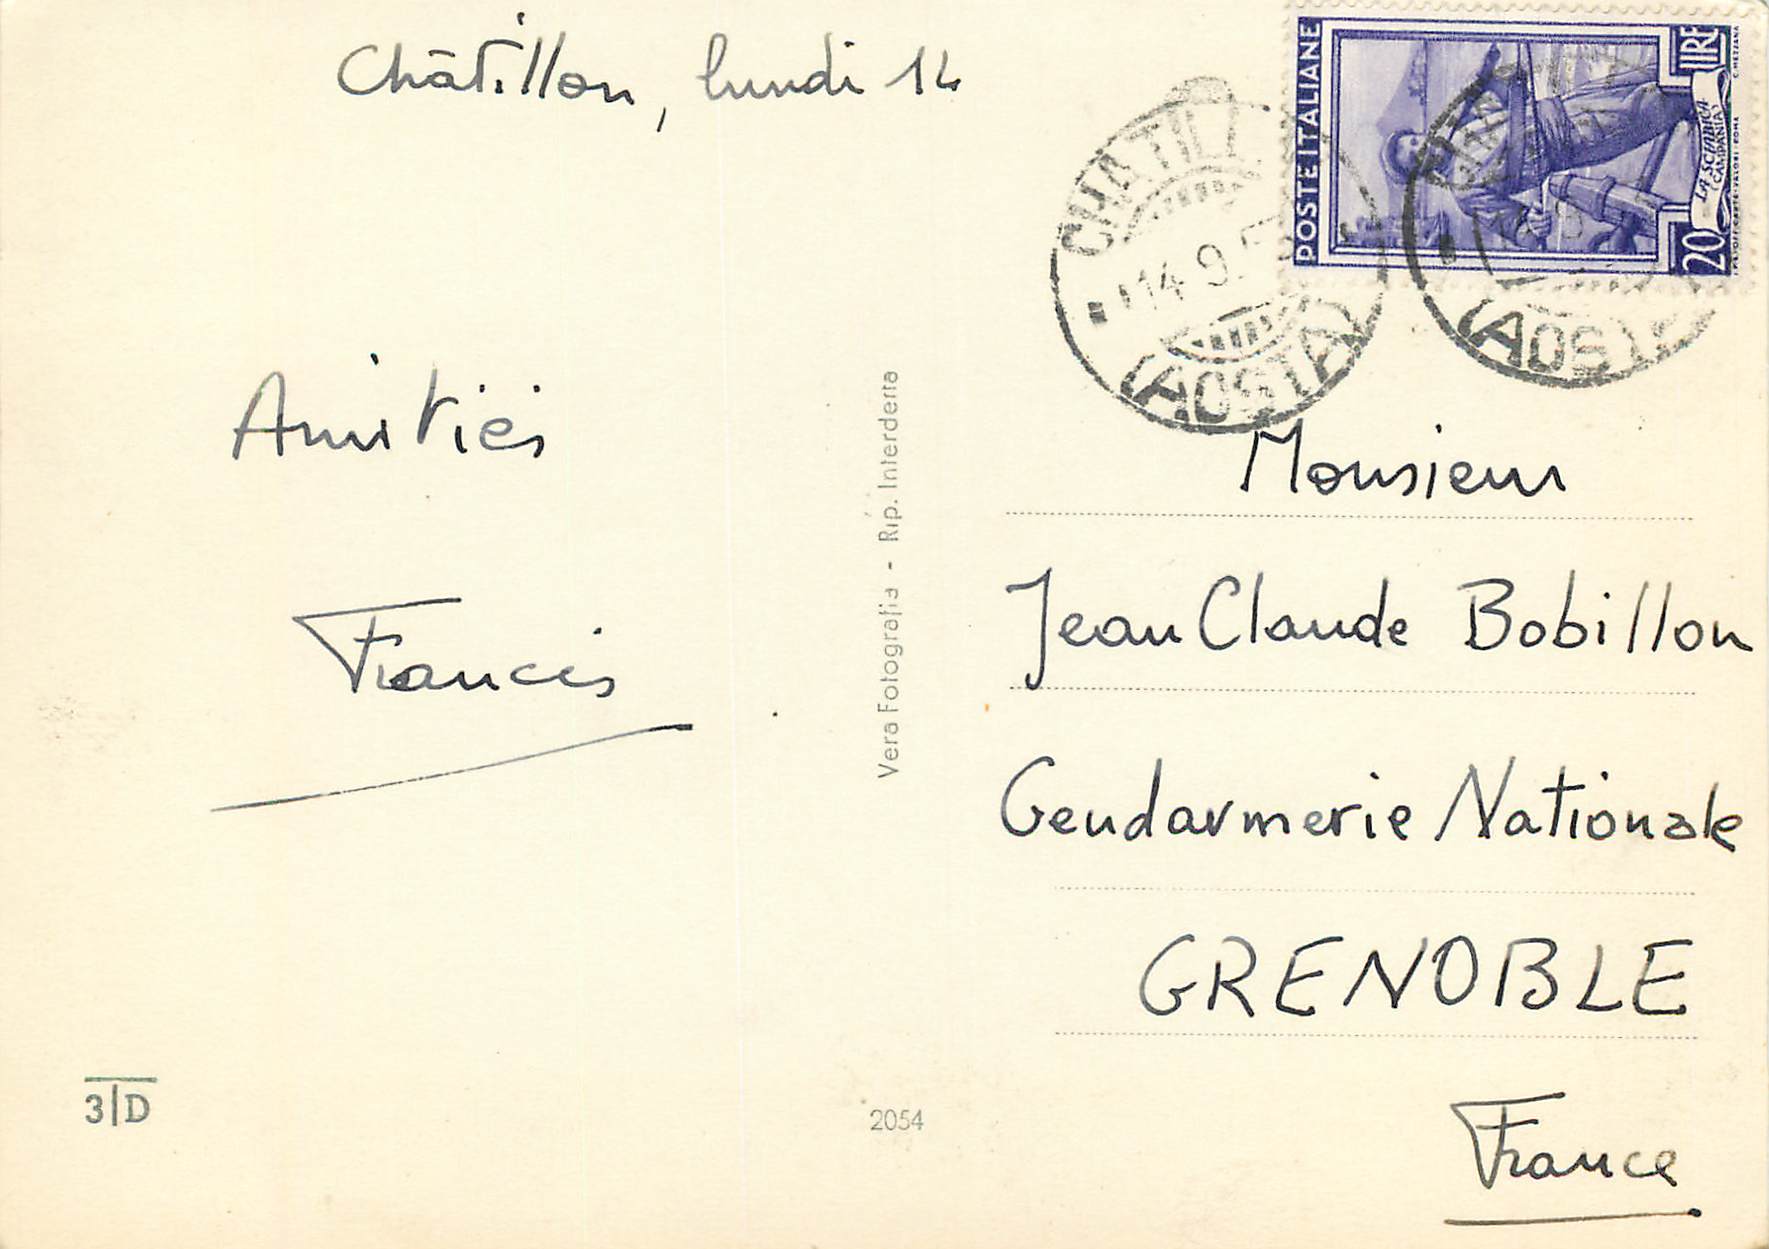 Châtillon, lundi 14
Amitiés
Francis
3|D
Vera Fotografia - Rip. Interdetta
2054
POSTE ITALIANE
20 LIRE
LA SCIABICA
(CAMPANIA)
CHATILL
14.9.5
(AOSTA)
(AOSTA
Monsieur
Jean Claude Bobillon
Gendarmerie Nationale
GRENOBLE
France